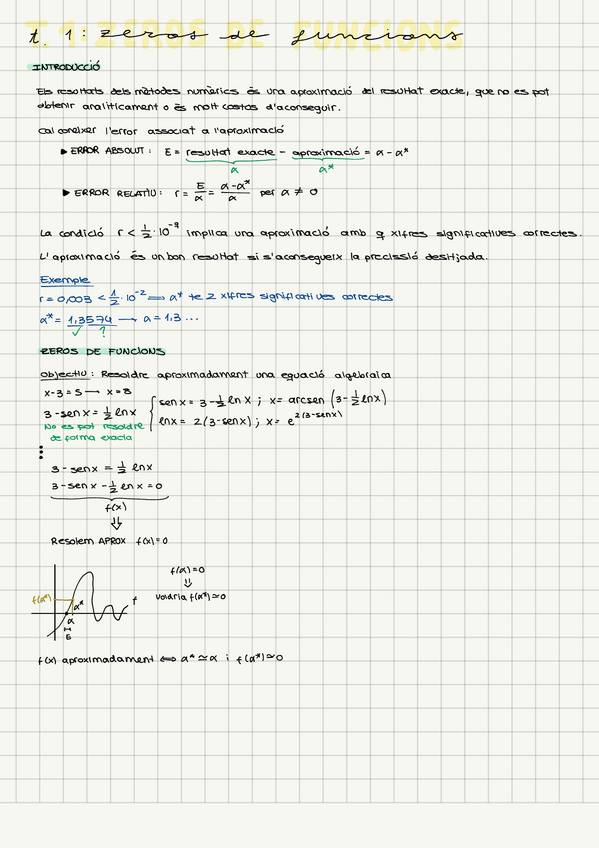 T.1: ZEROS DE FUNCIONS
t. 1: zeros de funcions
INTRODUCCIÓ
Els resultats dels mètodes numèrics és una aproximació del resultat exacte, que no es pot
obtenir analíticament o és molt costós d'aconseguir.
Cal conèixer l'error associat a l'aproximació
▶ ERROR ABSOLUT: E = resultat exacte - aproximació = α - α*
α α*
▶ ERROR RELATIU: r = E/α = (α-α*)/α per α ≠ 0
La condició r < 1/2 · 10^-q implica una aproximació amb q xifres significatives correctes.
L'aproximació és un bon resultat si s'aconsegueix la precissió desitjada.
Exemple
r = 0,003 < 1/2 · 10^-2 ⟹ α* té 2 xifres significatives correctes
α* = 1,3574 → α = 1,3 ...
✓ ?
ZEROS DE FUNCIONS
Objectiu: Resoldre aproximadament una equació algebraica
x-3=5 → x=8
3-senx = 1/2 lnx
No es pot resoldre
de forma exacta
senx = 3-1/2 lnx ; x= arcsen (3-1/2 lnx)
lnx = 2(3-senx) ; x= e^2(3-senx)
3-senx = 1/2 lnx
3-senx -1/2 lnx = 0
f(x)
⇓
Resolem APROX f(x)=0
f(α)=0
⇓
voldria f(α*)≃0
f(α*)
α*
f
α
E
f(x) aproximadament ⟺ α* ≃ α i f(α*) ≃ 0